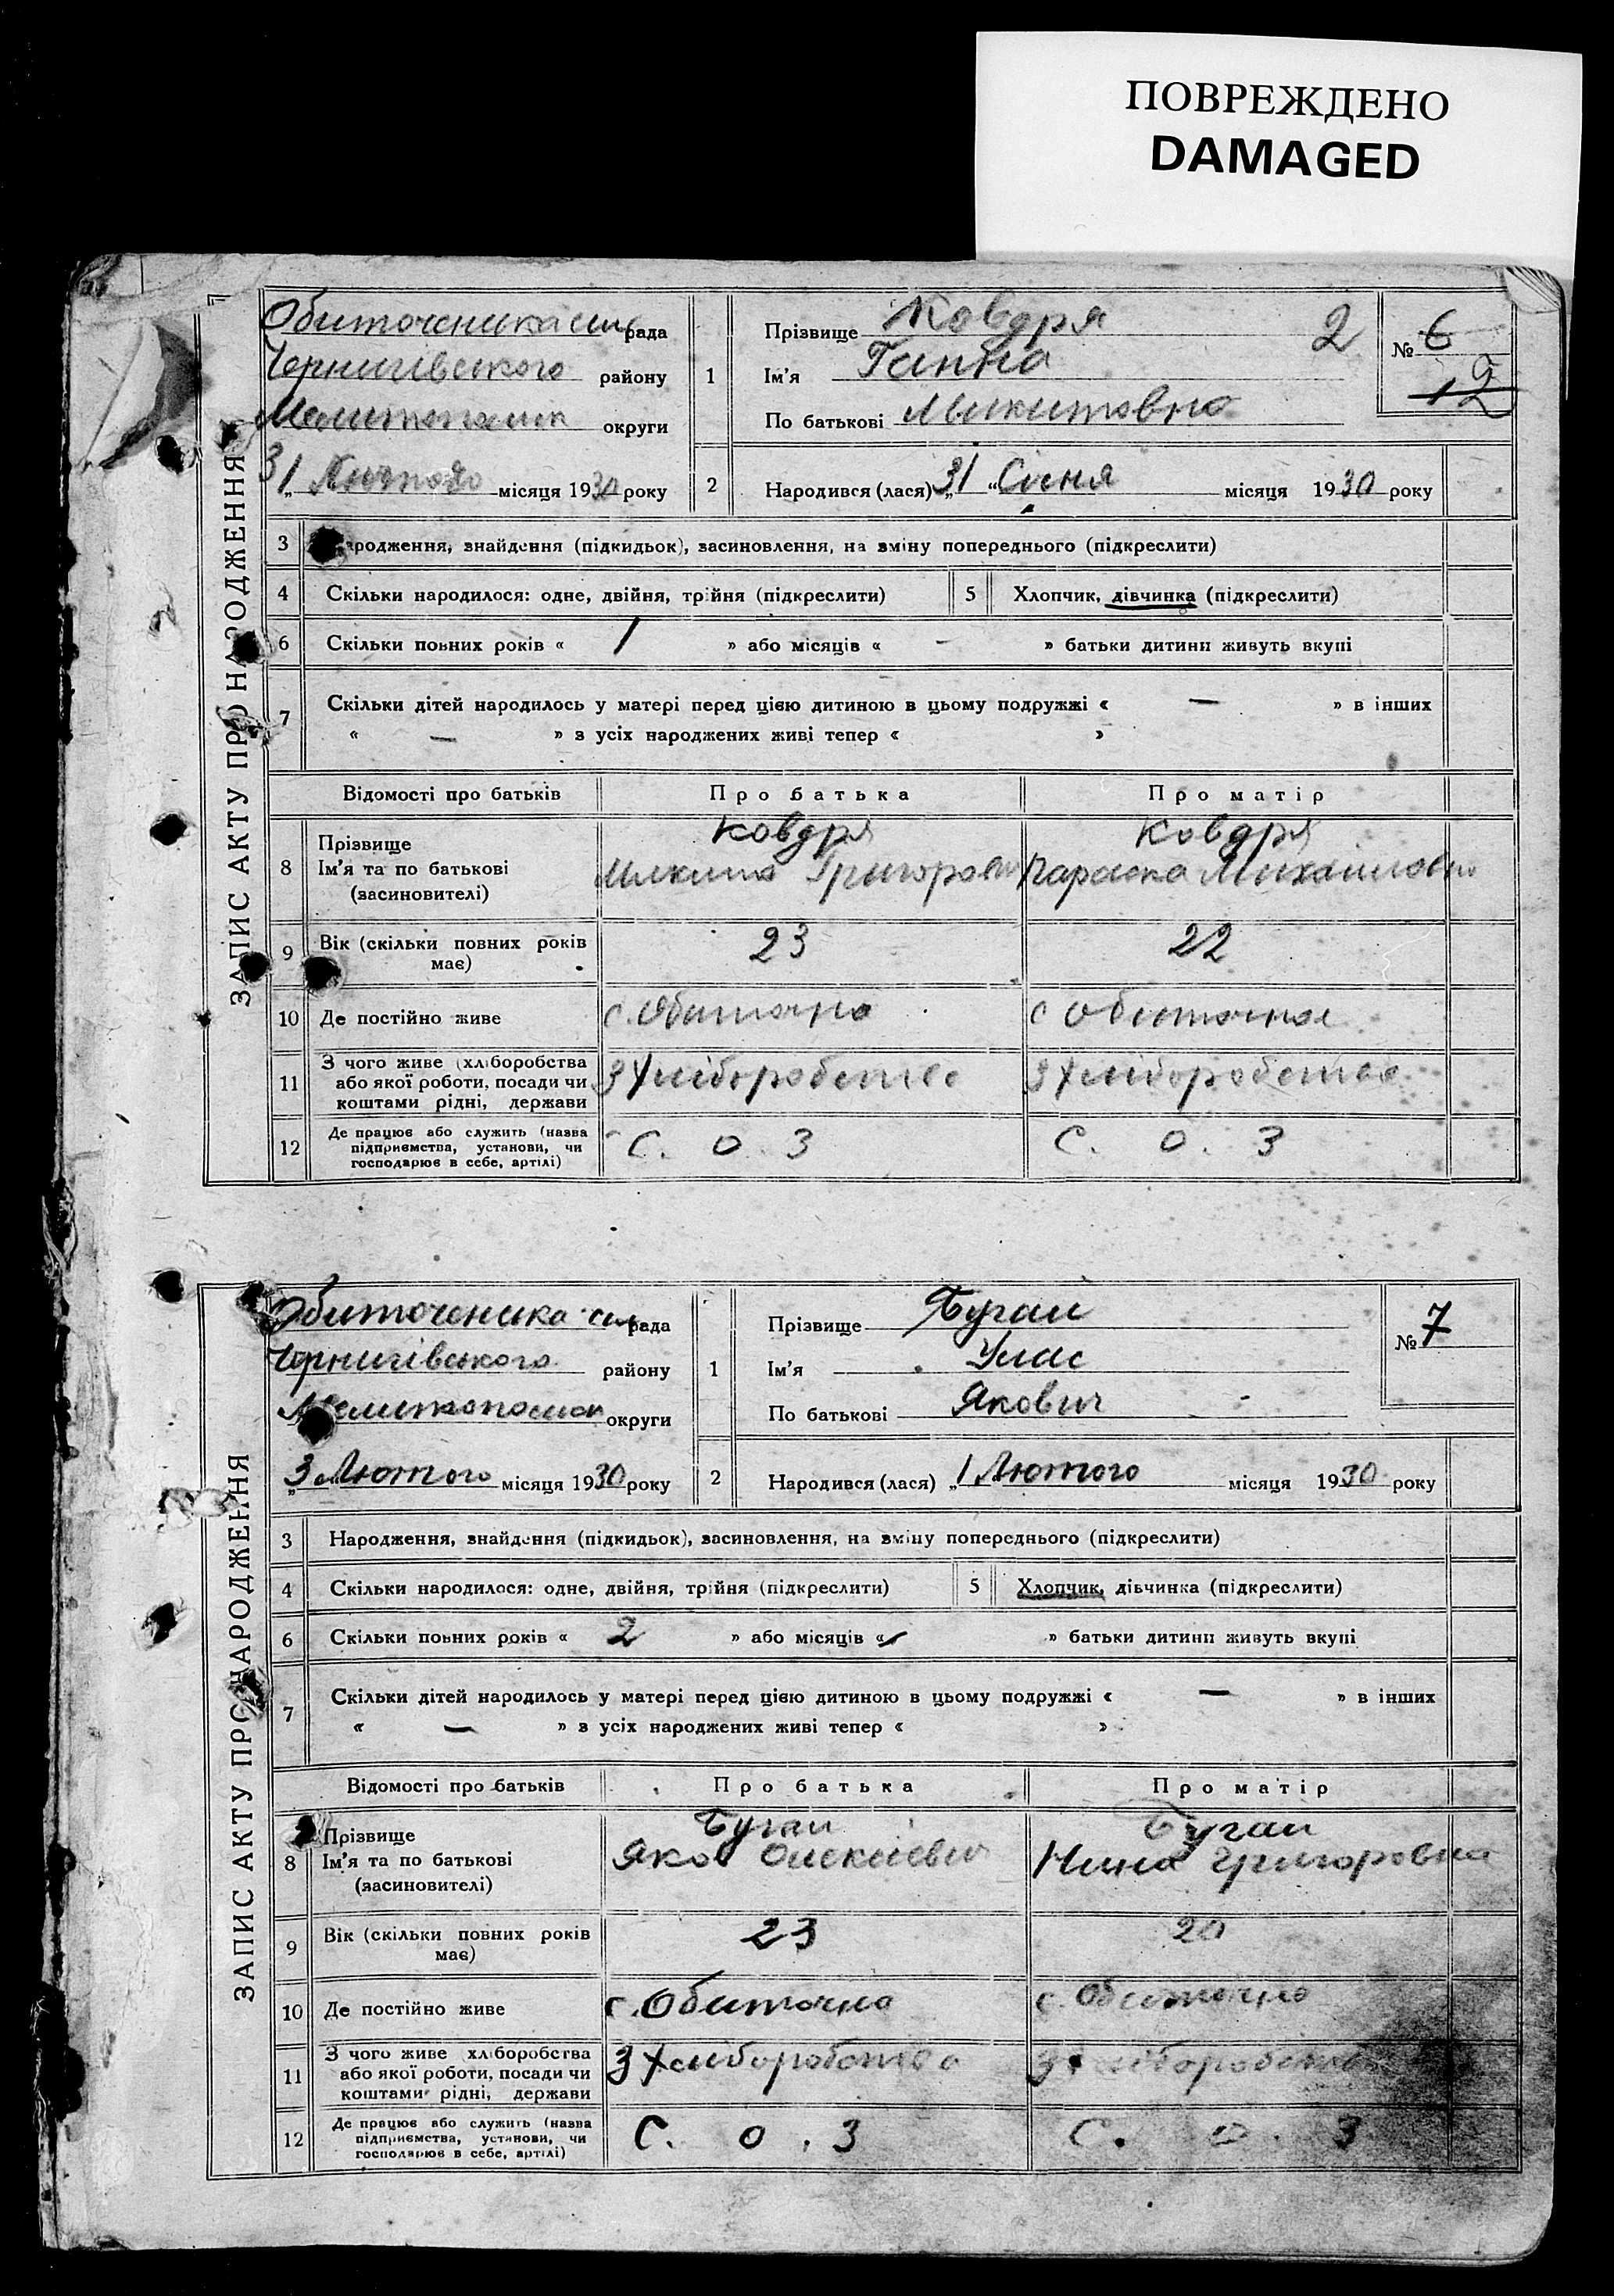 ПОВРЕЖДЕНО
DAMAGED
ЗАПИС АКТУ ПРО НАРОДЖЕННЯ
Обиточеника сил рада
Чернигівського району
округи
31 Лютого місяця 1930 року
1
Прізвище Ковдря
2
Ім'я Ганна
По батькові Микитовно
№ 6
2
Народився (лася) „31“ Сісня місяця 1930 року
3 ародження, знайдення (підкидьок), засиновлення, на зміну попереднього (підкреслити)
4 Скільки народилося: одне, двійня, трійня (підкреслити) 5 Хлопчик, дівчинка (підкреслити)
6 Скільки повних років « 1 » або місяців « - » батьки дитини живуть вкупі
7 Скільки дітей народилось у матері перед цією дитиною в цьому подружжі « — » в інших
« — » з усіх народжених живі тепер « »
Відомості про батьків Про батька Про матір
8 Прізвище Ім'я та по батькові (засиновителі)
Ковдря Ковдря
Микита Григорович Параска Михайловно
9 Вік (скільки повних років має) 23 22
10 Де постійно живе с. Обиточно с Обиточное
11 З чого живе (хліборобства або якої роботи, посади чи коштами рідні, держави З Хліборобство З Хліборобство
12 Де працює або служить (назва підприємства, установи, чи господарює в себе, артілі) С. О. З С. О. З
ЗАПИС АКТУ ПРО НАРОДЖЕННЯ
Обиточеника сил рада
Чернигівського району
округи
„3“ Лютого місяця 1930 року
1
Прізвище Бугай
Ім'я Улас
По батькові Якович
№ 7
2
Народився (лася) „1“ Лютого місяця 1930 року
3 Народження, знайдення (підкидьок), засиновлення, на зміну попереднього (підкреслити)
4 Скільки народилося: одне, двійня, трійня (підкреслити) 5 Хлопчик, дівчинка (підкреслити)
6 Скільки повних років « 2 » або місяців « » батьки дитини живуть вкупі
7 Скільки дітей народилось у матері перед цією дитиною в цьому подружжі « — » в інших
« — » з усіх народжених живі тепер « »
Відомості про батьків Про батька Про матір
8 Прізвище Ім'я та по батькові (засиновителі)
Бугаи Бугаи
Яков Олексіевич Нина Григоровна
9 Вік (скільки повних років має) 23 20
10 Де постійно живе с. Обиточно с. Обиточно
11 З чого живе хліборобства або якої роботи, посади чи коштами рідні, держави З Хліборобство З Хліборобство
12 Де працює або служить (назва підприємства, установи, чи господарює в себе, артілі) С. О. З С. О. З